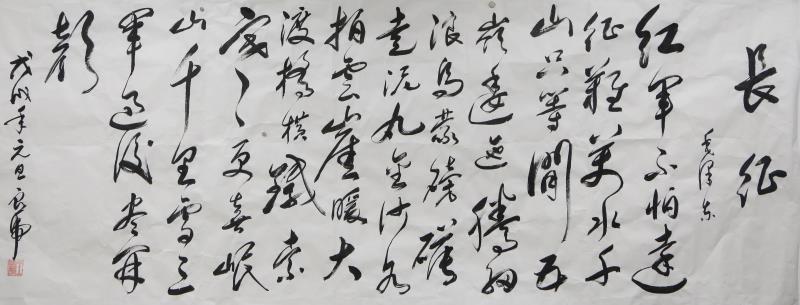 長征
毛澤東
紅軍不怕遠
征難萬水千
山只等閒五
嶺逶迤騰細
浪烏蒙磅礴
走泥丸金沙水
拍雲崖暖大
渡橋橫鐵索
寒更喜岷
山千里雪三
軍過後盡開
顏
戊戌年元旦